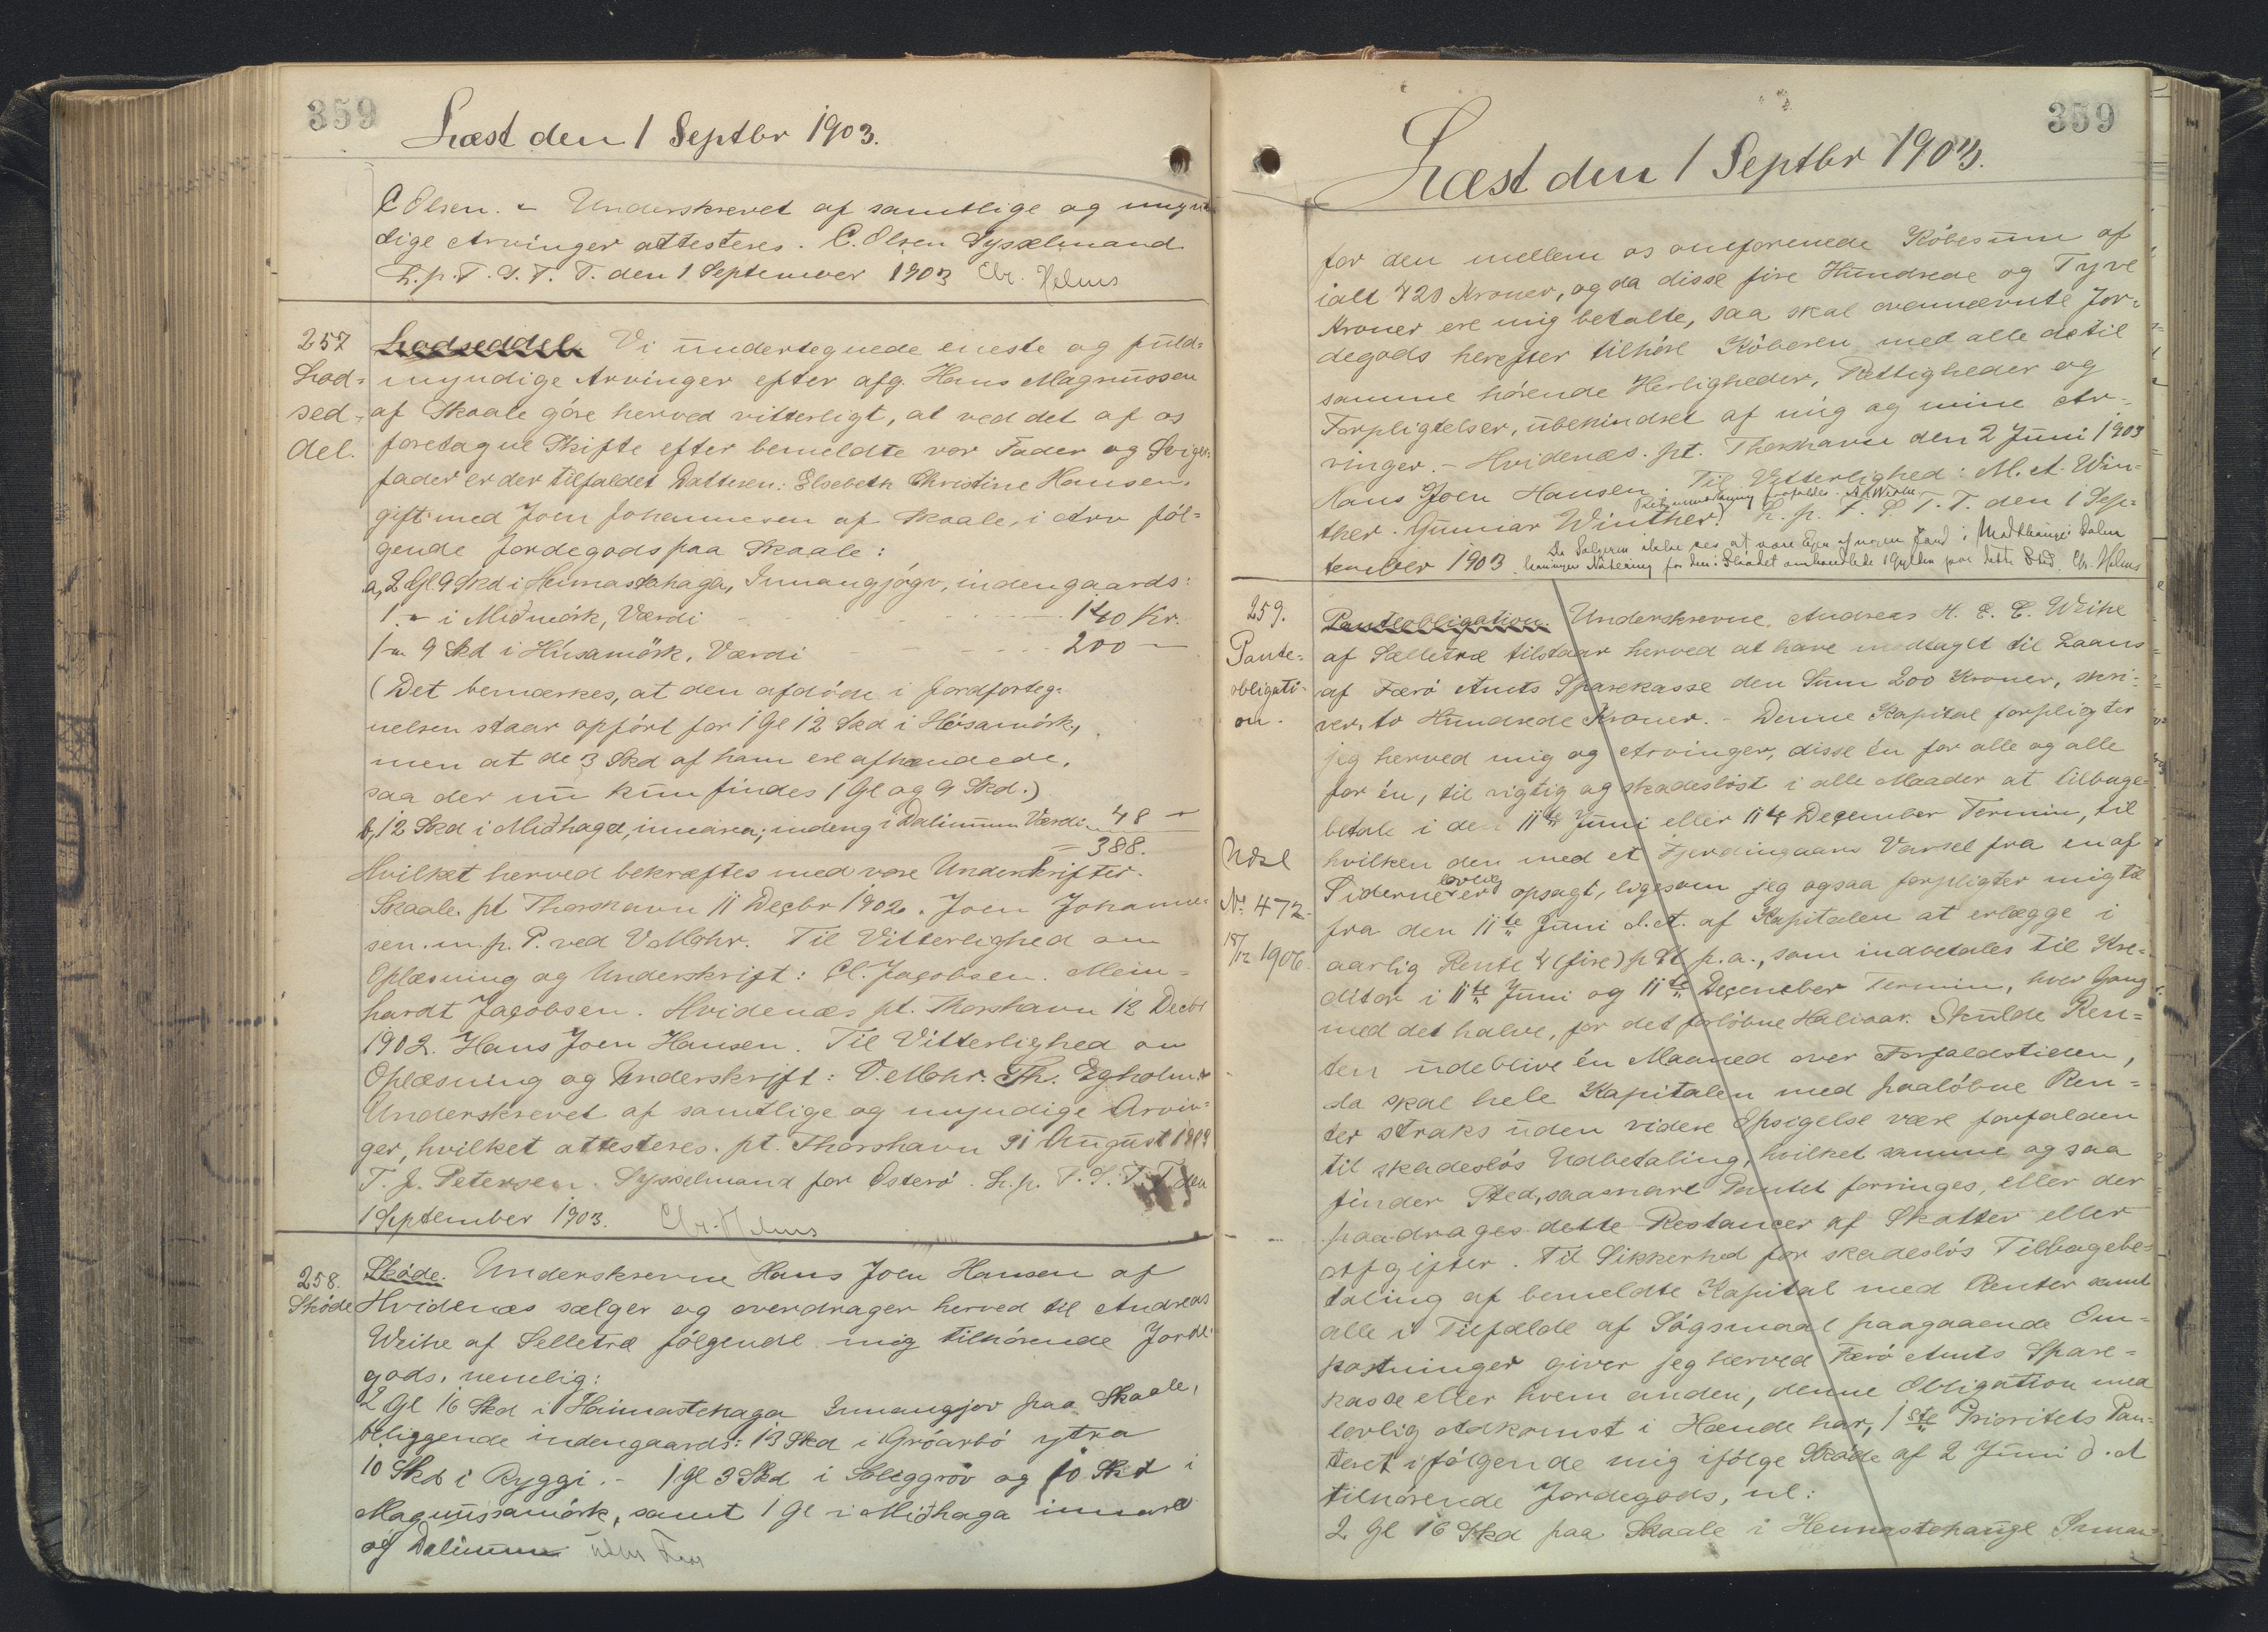 359
Læst den 1 Septbr 1903.
C Olsen. - Underskrevet af samtlige og myn
dige Arvinger attesteres. C. Olsen Sysselmand
L. p. T. S. T. T. den 1 September 1903 Chr. Helms
257
Lod=
sed=
del.
Lodseddel. Vi undertegnede eneste og fuld=
myndige Arvinger efter afg. Hans Magnussen
af Skaale göre herved vitterligt, at ved det af os
foretagne Skifte efter bemeldte vor Fader og Sviger=
fader er der tilfaldet Datteren: Elsebeth Christine Hansen,
gift med Joen Johannesen af Skaale, i Arv föl=
gende Jordegods paa Skaale:
a, 2 Gl 9 Skd i Heimastahaga, Innangjógv, indengaards:
1 " i Miðmörk, Værdi 140 Kr.
1 " 9 Skd i Húsamörk, Værdi 200 —
(Det bemærkes, at den afdöde i Jordforteg=
nelsen staar opfört for 1 Gl 12 Skd i Húsamörk,
men at de 3 Skd af ham ere afhændede,
saa der nu kun findes 1 Gl og 9 Skd.)
b, 12 Skd i Miðhaga, innara; indeng i Dalinum Værdi 48 —
= 388.
Hvilket herved bekræftes med vore Underskrifter.
Skaale. pt Thorshavn 11 Decbr 1902. Joen Johanne
sen. m. p. P. ved V Mohr. Til Vitterlighed om
Oplæsning og Underskrift: Cl. Jacobsen. Mein=
hardt Jacobsen. Hvidenæs pt. Thorshavn 12 Decbr
1902. Hans Joen Hansen. Til Vitterlighed om
Oplæsning og Underskrift: V. Mohr. Th. Egholm
Underskrevet af samtlige og myndige Arvin=
ger, hvilket attesteres. pt. Thorshavn 31 August
T. J. Petersen. Sysselmand for Österö. L. p. T. S. T. T den
1 September 1903. Chr. Helms
258.
Sköde
Sköde. Underskrevne Hans Joen Hansen af
Hvidenæs sælger og overdrager herved til Andreas
Weihe af Selletræ fölgende mig tilhörende Jorde=
gods, nemlig:
2 Gl 16 Skd i Heimastehaga Innangjov paa Skaale,
beliggende indengaards: 13 Skd i Gróarbö ytra
10 Skd i Ryggi. - 1 Gl 3 Skd i Soleggróv og 10 Skd i
Magnussamörk, samt 1 Gl i Miðhaga innare
og Dalinum
359
Læst den 1 Septbr 1903.
for den mellem os omforenede Köbesum af
ialt 420 Kroner, og da disse fire Hundrede og Tyve
Kroner ere mig betalte, saa skal ovennævnte Jor=
degods herefter tilhöre Köberen med alle de til
samme hörende Herligheder, Rettigheder og
Forpligtelser, ubehindret af mig og mine Ar=
vinger. - Hvidenæs. pt. Thorshavn den 2 Juni 1903
Hans Joen Hansen. Til Vitterlighed: M. A. Win=
ther. Gunnar Winther. L. p. T. S. T. T. den 1 Sep=
tember 1903. Da Sælgeren ikke ses at være Ejer af nogen Jord i Midthauge i Dalen
Notering for den i Skjødet omhandlede 1 Gylden paa dette Sted. Chr. Helms
259.
Pante=
obligati=
on.
Udsl
No. 472.
18/12 1906.
Panteobligation. Underskrevne, Andreas H. E. C. Weihe
af Sælletræ tilstaar herved at have modtaget til Laans
af Færö Amts Sparekasse den Sum 200 Kroner, skri=
ver, to Hundrede Kroner. - Denne Kapital forpligter
jeg herved mig og Arvinger, disse én for alle og alle
for én, til rigtig og skadeslöst i alle Maader at tilbage=
betale i den 11te Juni eller 11te December Termin, til
hvilken den med et Fjerdingaars Varsel fra en af
Siderne er lovlig opsagt, ligesom jeg ogsaa forpligter mig til
fra den 11te Juni d. A. af Kapitalen at erlægge i
aarlig Rente 4 (fire) pCt p. a., som indbetales til Kre=
ditor i 11te Juni og 11te December Termin, hver Gang
med det halve, for det forlöbne Halvaar. Skulde Ren=
ten udeblive én Maaned over Forfaldstiden,
da skal hele Kapitalen med paalöbne Ren=
ter straks uden videre Opsigelse være forfalden
til skadeslös Udbetaling, hvilket samme og saa
finder Sted, saasnart Pantet forringes, eller der
paadrages dette Restancer af Skatter eller
Afgifter. Til Sikkerhed for skadeslös Tilbagebe=
taling af bemeldte Kapital med Renter samt
alle i Tilfælde af Sögsmaal paagaaende Om=
kostninger giver jeg herved Færö Amts Spare=
kasse eller hvem anden, denne Obligation med
lovlig Adkomst i Hænde har, 1ste Prioritets Pan=
teret i fölgende mig ifölge Sköde af 2 Juni d. A
tilhörende Jordegods, nl:
2 Gl 16 Skd paa Skaale i Heimastehauge Innan=